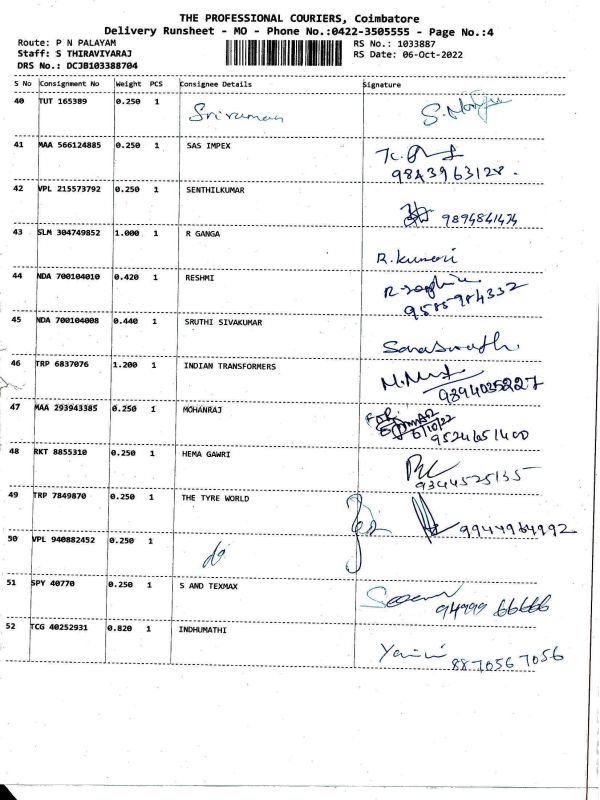 THE PROFESSIONAL COURIERS, Coimbatore
Delivery Runsheet - MO - Phone No.:0422-3505555 - Page No.:4
Route: P N PALAYAM RS No.: 1033887
Staff: S THIRAVIYARAJ RS Date: 06-Oct-2022
DRS No.: DCJB103388704
S No Consignment No Weight PCS Consignee Details Signature
40 TUT 165389 0.250 1 Sriraman
41 MAA 566124885 0.250 1 SAS IMPEX
9843963128.
42 VPL 215573792 0.250 1 SENTHILKUMAR
9894841474
43 SLM 304749852 1.000 1 R GANGA
R.kumari
44 NDA 700104010 0.420 1 RESHMI
9585984332
45 NDA 700104008 0.440 1 SRUTHI SIVAKUMAR
46 TRP 6837076 1.200 1 INDIAN TRANSFORMERS
9394035227
47 MAA 293943385 0.250 1 MOHANRAJ
6/10/22
9524651400
48 RKT 8855310 0.250 1 HEMA GAWRI
9344525135
49 TRP 7849870 0.250 1 THE TYRE WORLD
9944964992
50 VPL 940882452 0.250 1 do
51 SPY 40770 0.250 1 S AND TEXMAX
94999 66666
52 TCG 40252931 0.820 1 INDHUMATHI
8870567056